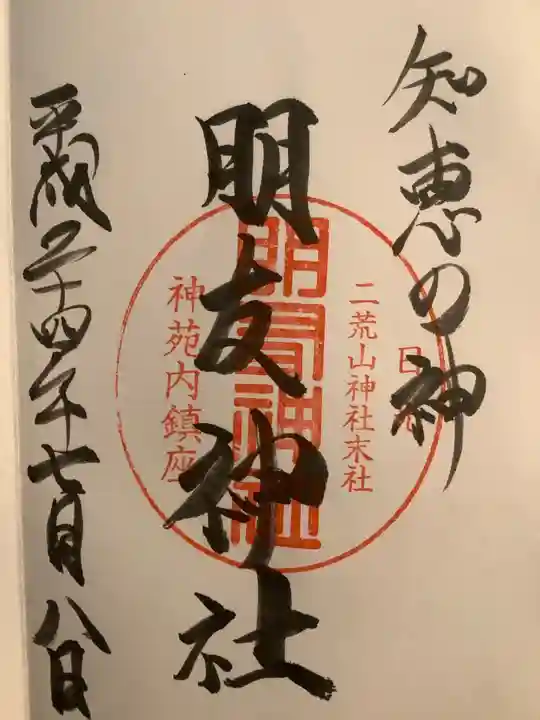 知恵の神
日光
二荒山神社末社
明友神社
明友神社
神苑内鎮座
平成二十四年七月八日